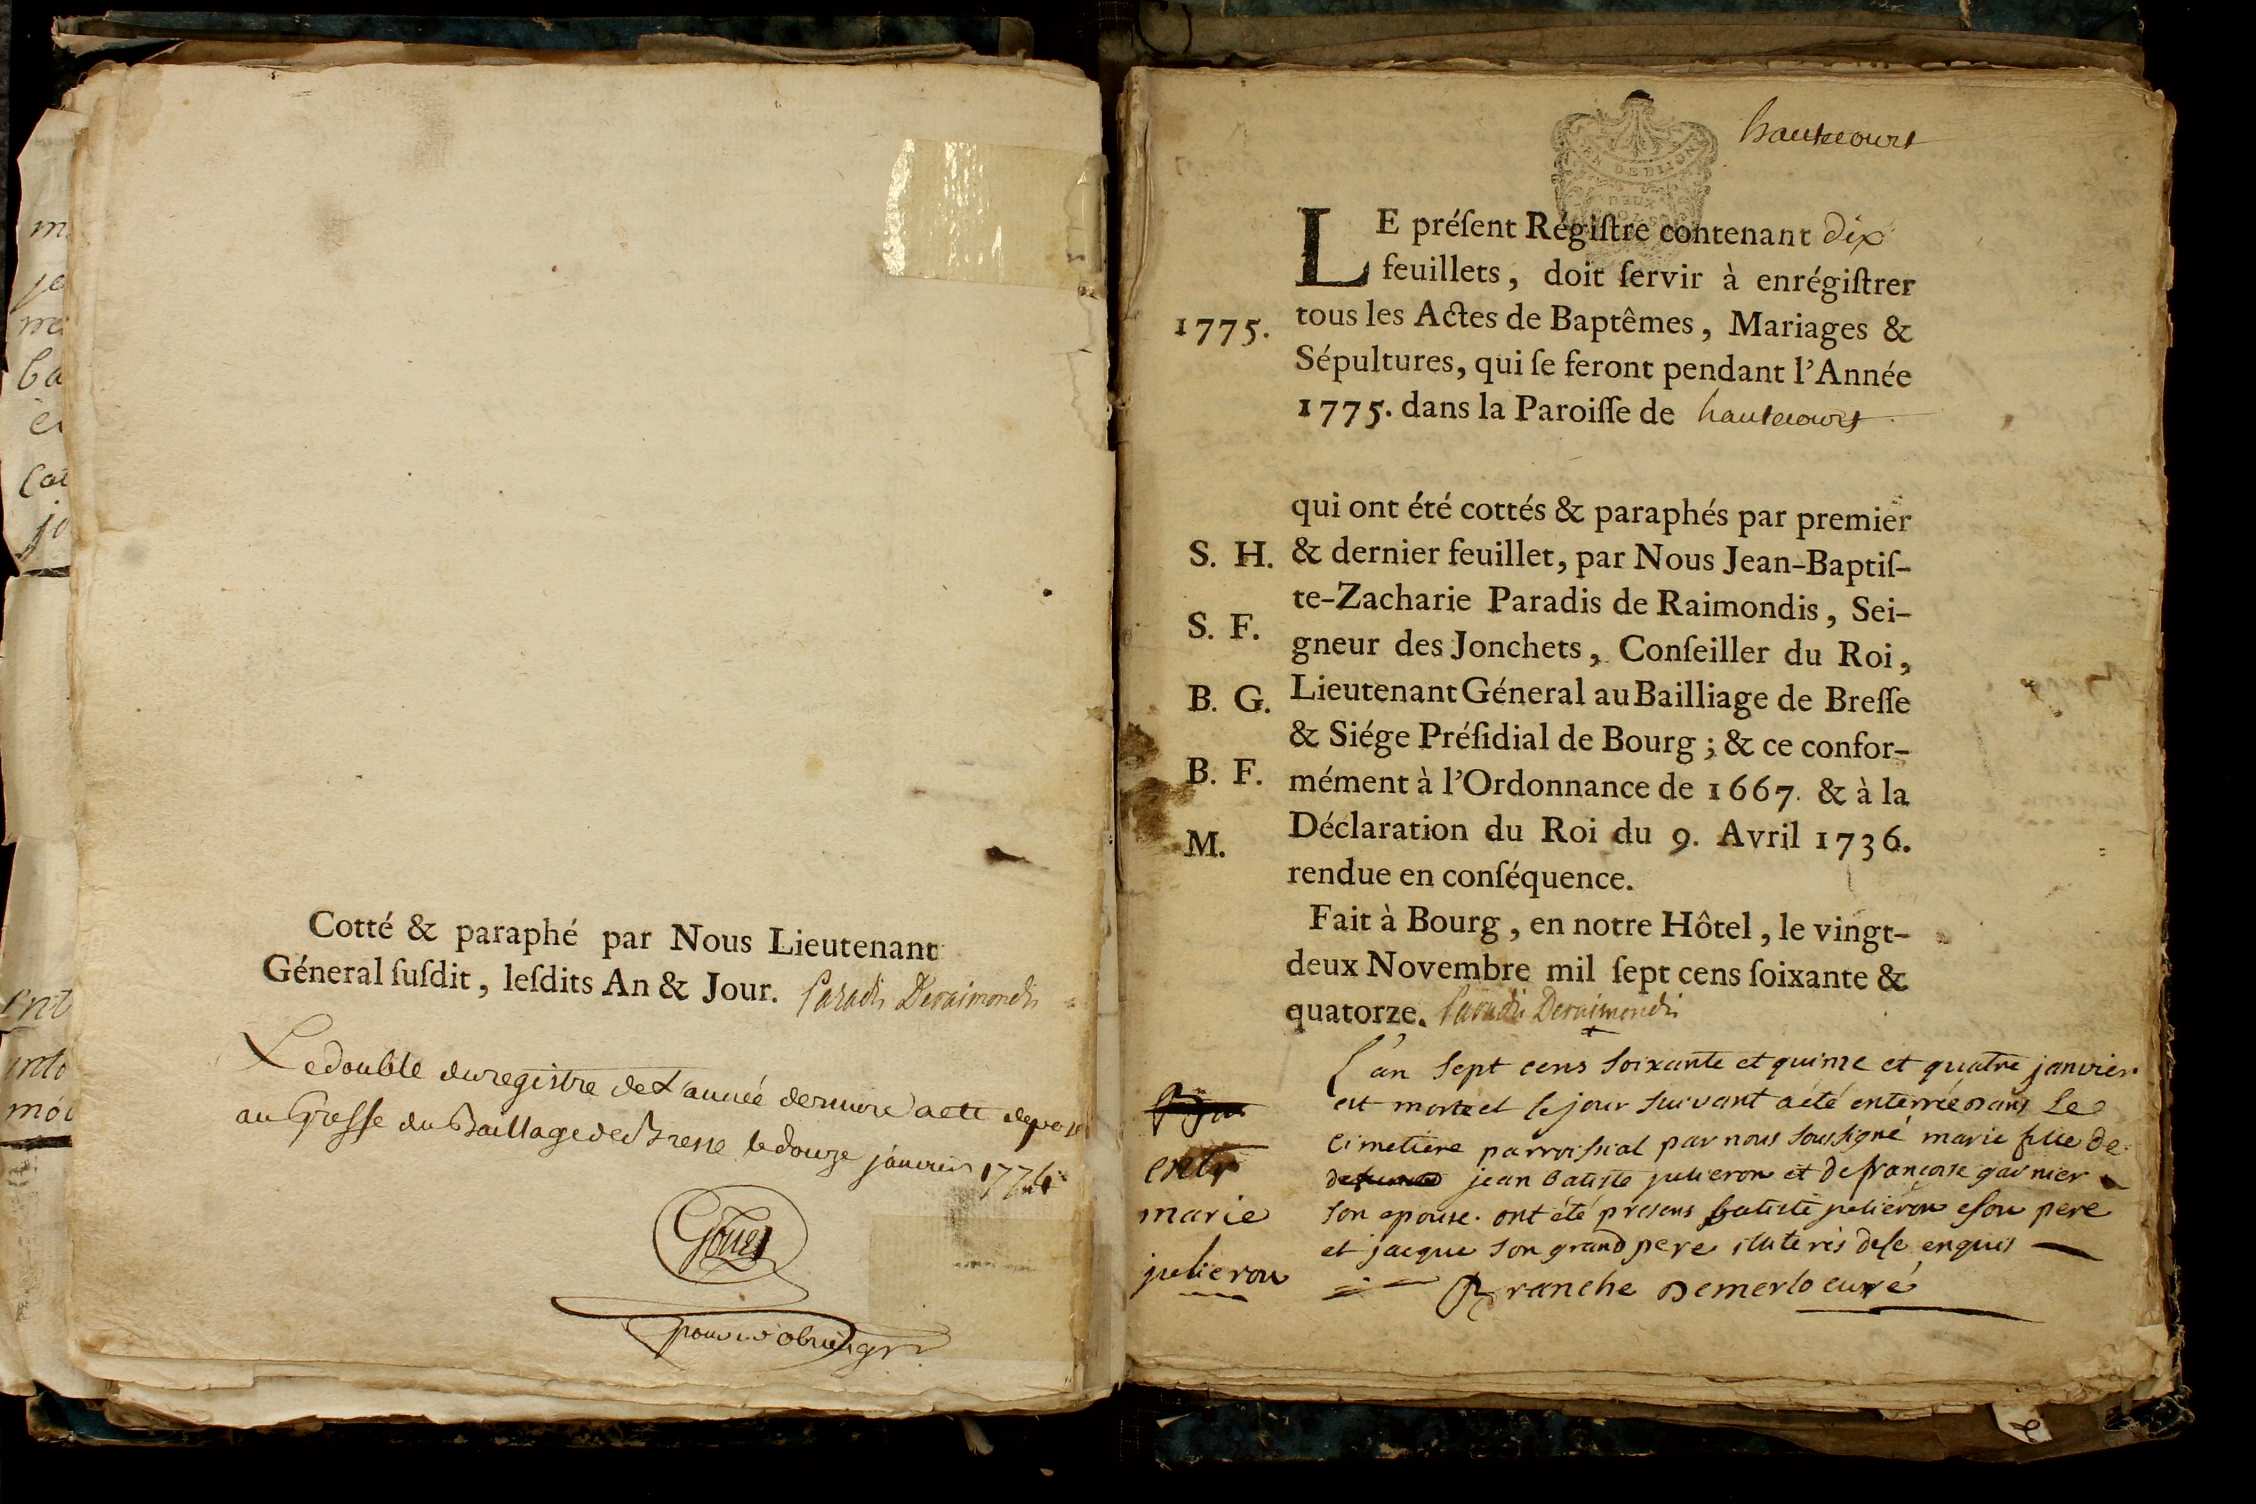 Cotté & paraphé par Nous Lieutenant
Géneral ſuſdit, leſdits An & Jour. Paradis Deraimondis
Le double du registre de L'année derniere a eté deposé
au Greffe du Bailliage de Bresse le douze janvier 1776
hautecourt
DEUX
LE préſent Régiſtre contenant dix
feuillets, doit ſervir à enrégiſtrer
1775.
tous les Actes de Baptêmes, Mariages &
Sépultures, qui ſe feront pendant l'Année
1775. dans la Paroiſſe de hautecourt
qui ont été cottés & paraphés par premier
S. H. & dernier feuillet, par Nous Jean-Baptiſ-
te-Zacharie Paradis de Raimondis, Sei-
S. F.
gneur des Jonchets, Conſeiller du Roi,
B. G. Lieutenant Géneral au Bailliage de Breſſe
& Siége Préſidial de Bourg; & ce confor-
B. F. mément à l'Ordonnance de 1667. & à la
M. Déclaration du Roi du 9. Avril 1736.
rendue en conſéquence.
Fait à Bourg, en notre Hôtel, le vingt-
deux Novembre mil ſept cens ſoixante &
quatorze. Paradis Deraimondis
L'an sept cens soixante et quinze et quatre janvier
est morte et le jour suivant a été enterrée dans Le
cimetiere parroissial par nous soussigné marie fille de
defunt jean batiste julieron et de francoise garnier
son epouse. ont été presens batiste julieron son pere
et jacque son grand pere illiterés de ce enquis
Branche Demerlo curé
entr
marie
julieron